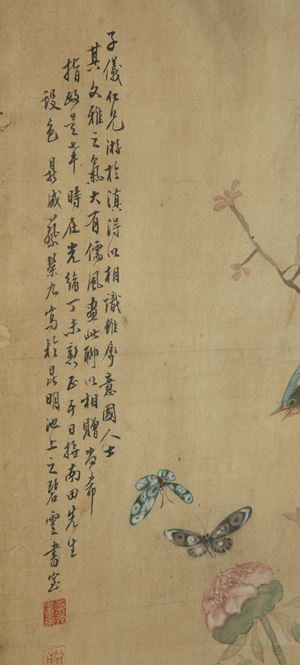 子儀仁兄游於滇得以相識雖屬意國人士
其文雅之氣大有儒風画此聊以相贈尚希
指政是幸時在光緒丁未新正下日撫南田先生
設色 晨成蔡榮九寫於昆明池上之碧雲書室